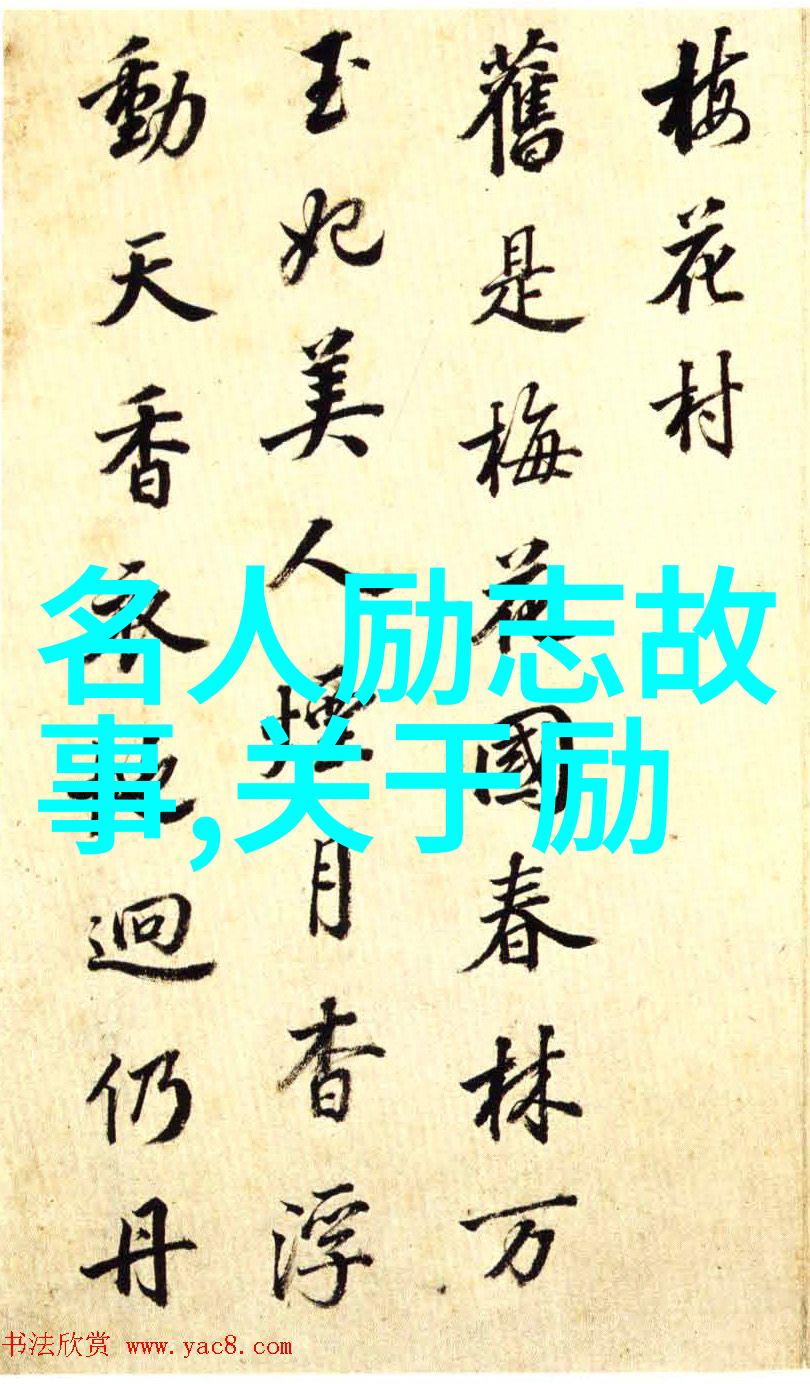 梅花村
舊是梅花國春林万
玉妃美人煙月杳浮
動天香衣迴仍丹
名人励志故
事,关于励
书法欣赏 www.yac8.com